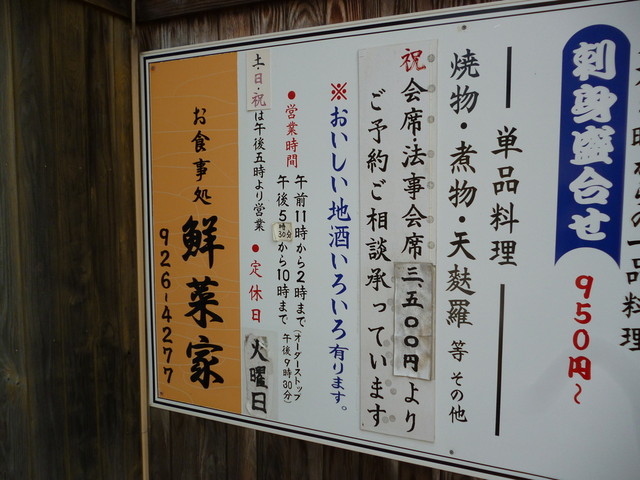 一品料理
刺身盛合せ
950円〜
単品料理
焼物・煮物・天麩羅 等 その他
祝会席・法事会席三、五〇〇円より
ご予約ご相談承っています
※おいしい地酒いろいろ有ります。
●営業時間
午前11時から2時まで(オーダーストップ
午後5時30分から10時まで 午後9時30分)
土・日・祝は午後五時より営業
●定休日
火曜日
お食事処
鮮菜家
926-4277